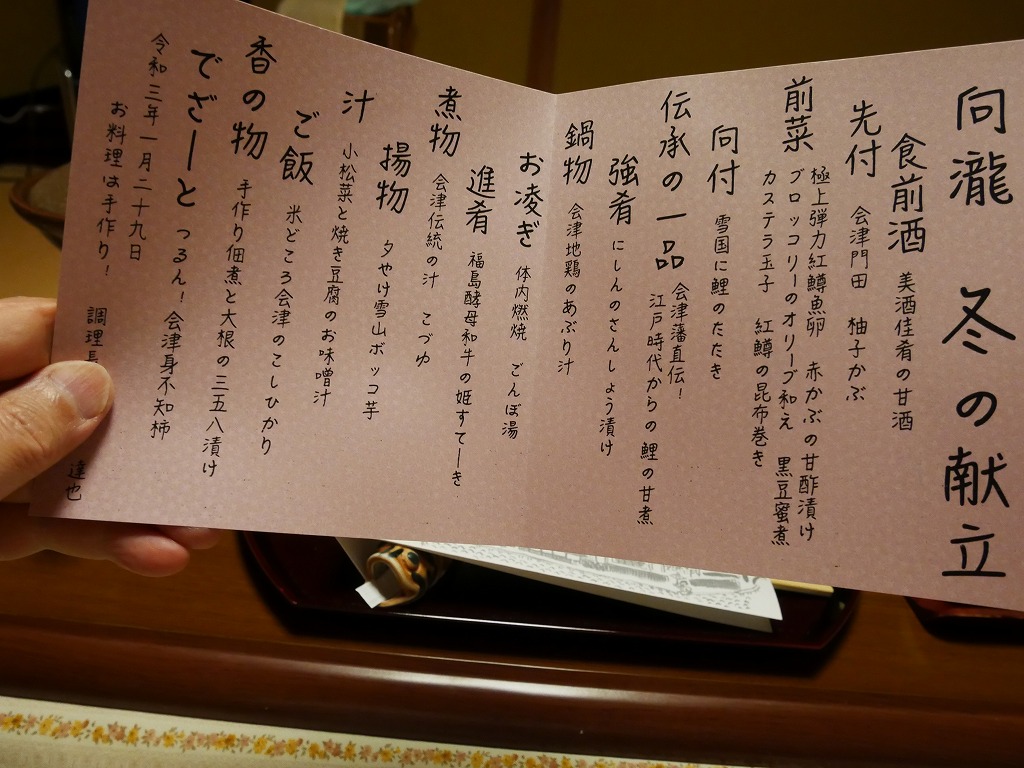 向瀧 冬の献立
食前酒 美酒佳肴の甘酒
先付 会津門田 柚子かぶ
前菜 極上弾力紅鱒魚卵 赤かぶの甘酢漬け
ブロッコリーのオリーブ和え 黒豆蜜煮
カステラ玉子 紅鱒の昆布巻き
向付 雪国に鯉のたたき
伝承の一品 会津藩直伝!
江戸時代からの鯉の甘煮
強肴 にしんのさんしょう漬け
鍋物 会津地鶏のあぶり汁
お凌ぎ 体内燃焼 ごんぼ湯
進肴 福島酵母和牛の姫すてーき
煮物 会津伝統の汁 こづゆ
揚物 夕やけ雪山ボッコ芋
汁 小松菜と焼き豆腐のお味噌汁
ご飯 米どころ会津のこしひかり
香の物 手作り佃煮と大根の三五八漬け
でざーと つるん!会津身不知柿
令和三年一月二十九日
お料理は手作り! 調理長 達也